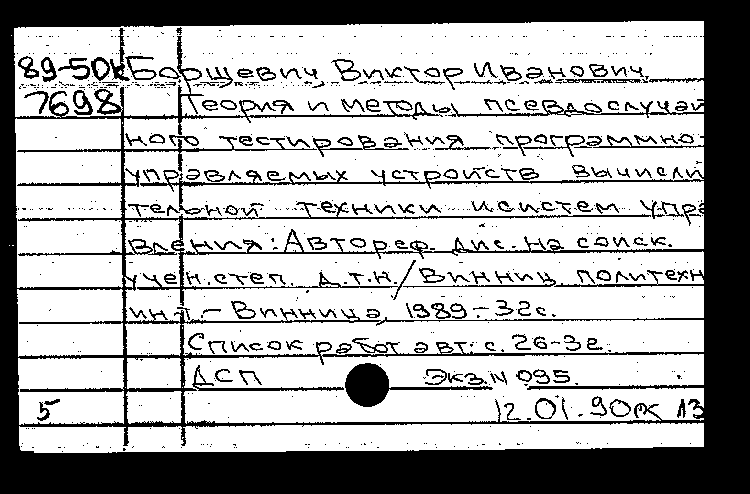 89-50к Борщевич, Виктор Иванович
7698 Теория и методы псевдослучай
ного тестирования программно-
управляемых устройств вычисли
тельной техники и систем упра
вления: Автореф. дис. на соиск.
учен. степ. д.т.н./Винниц. политехн
ин-т.- Винница, 1989.-32с.
Список работ авт.: с. 26-32.
ДСП Экз.N 095.
5 12.01.90 13